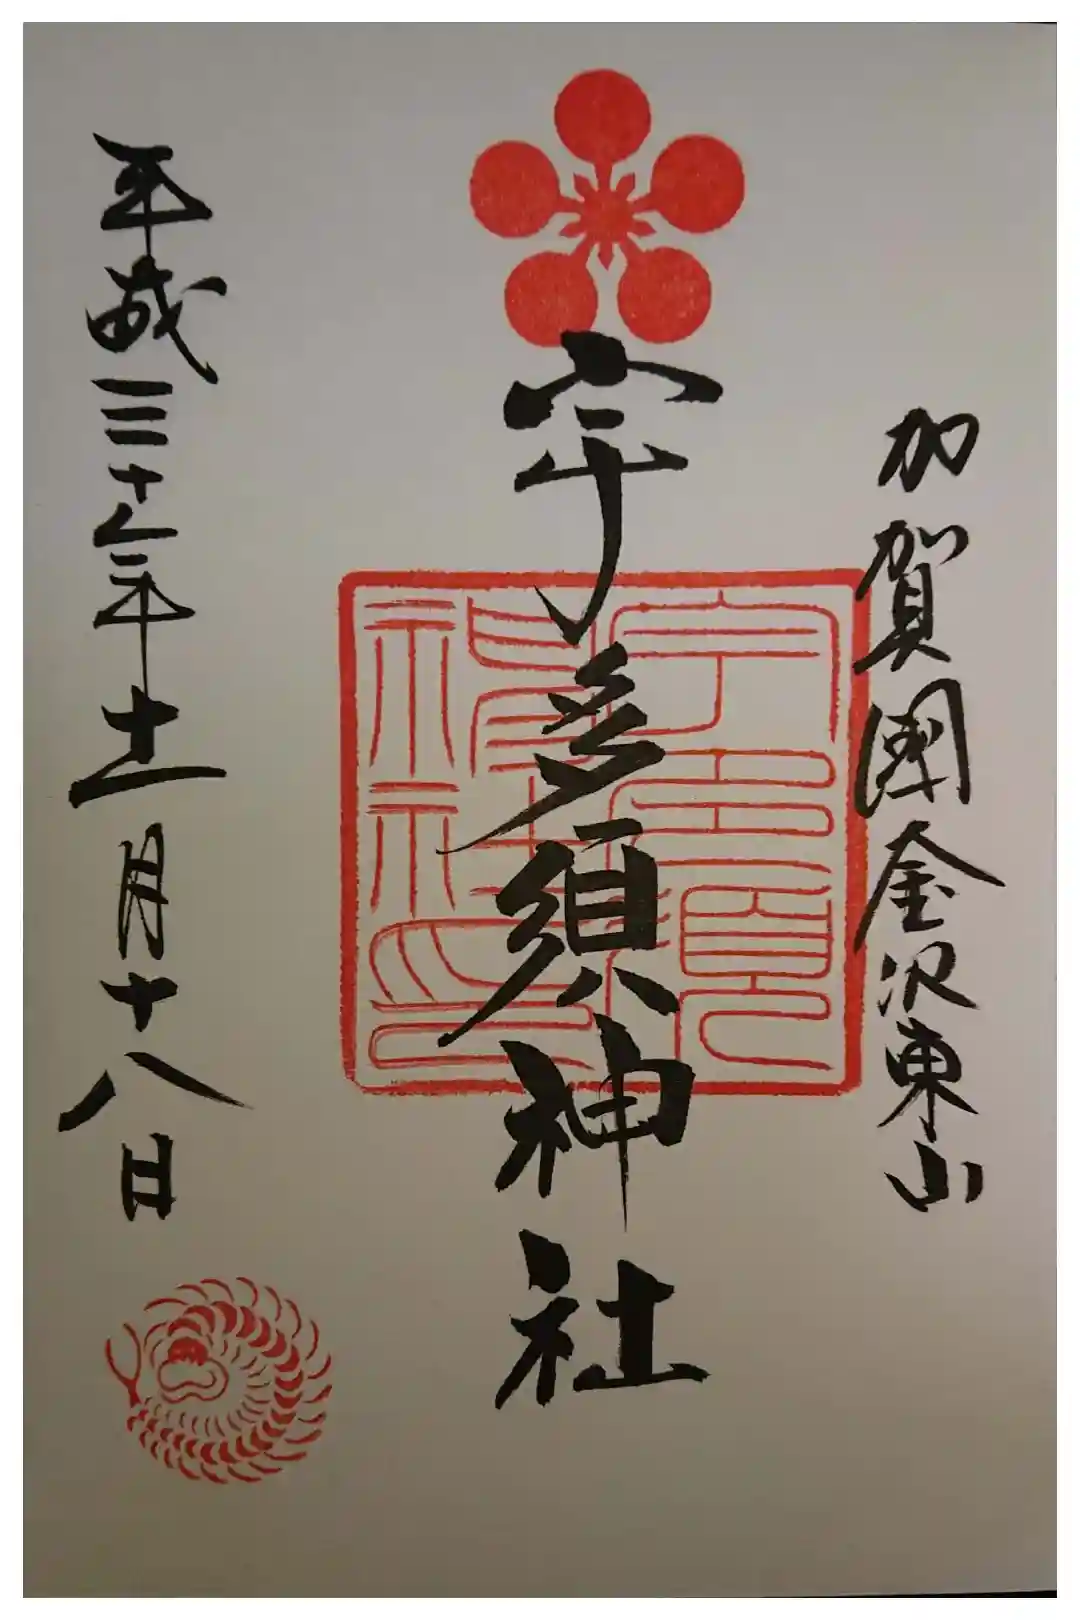 加賀國金沢東山
宇多須神社
宇多須
神社印
平成三十年十一月十八日